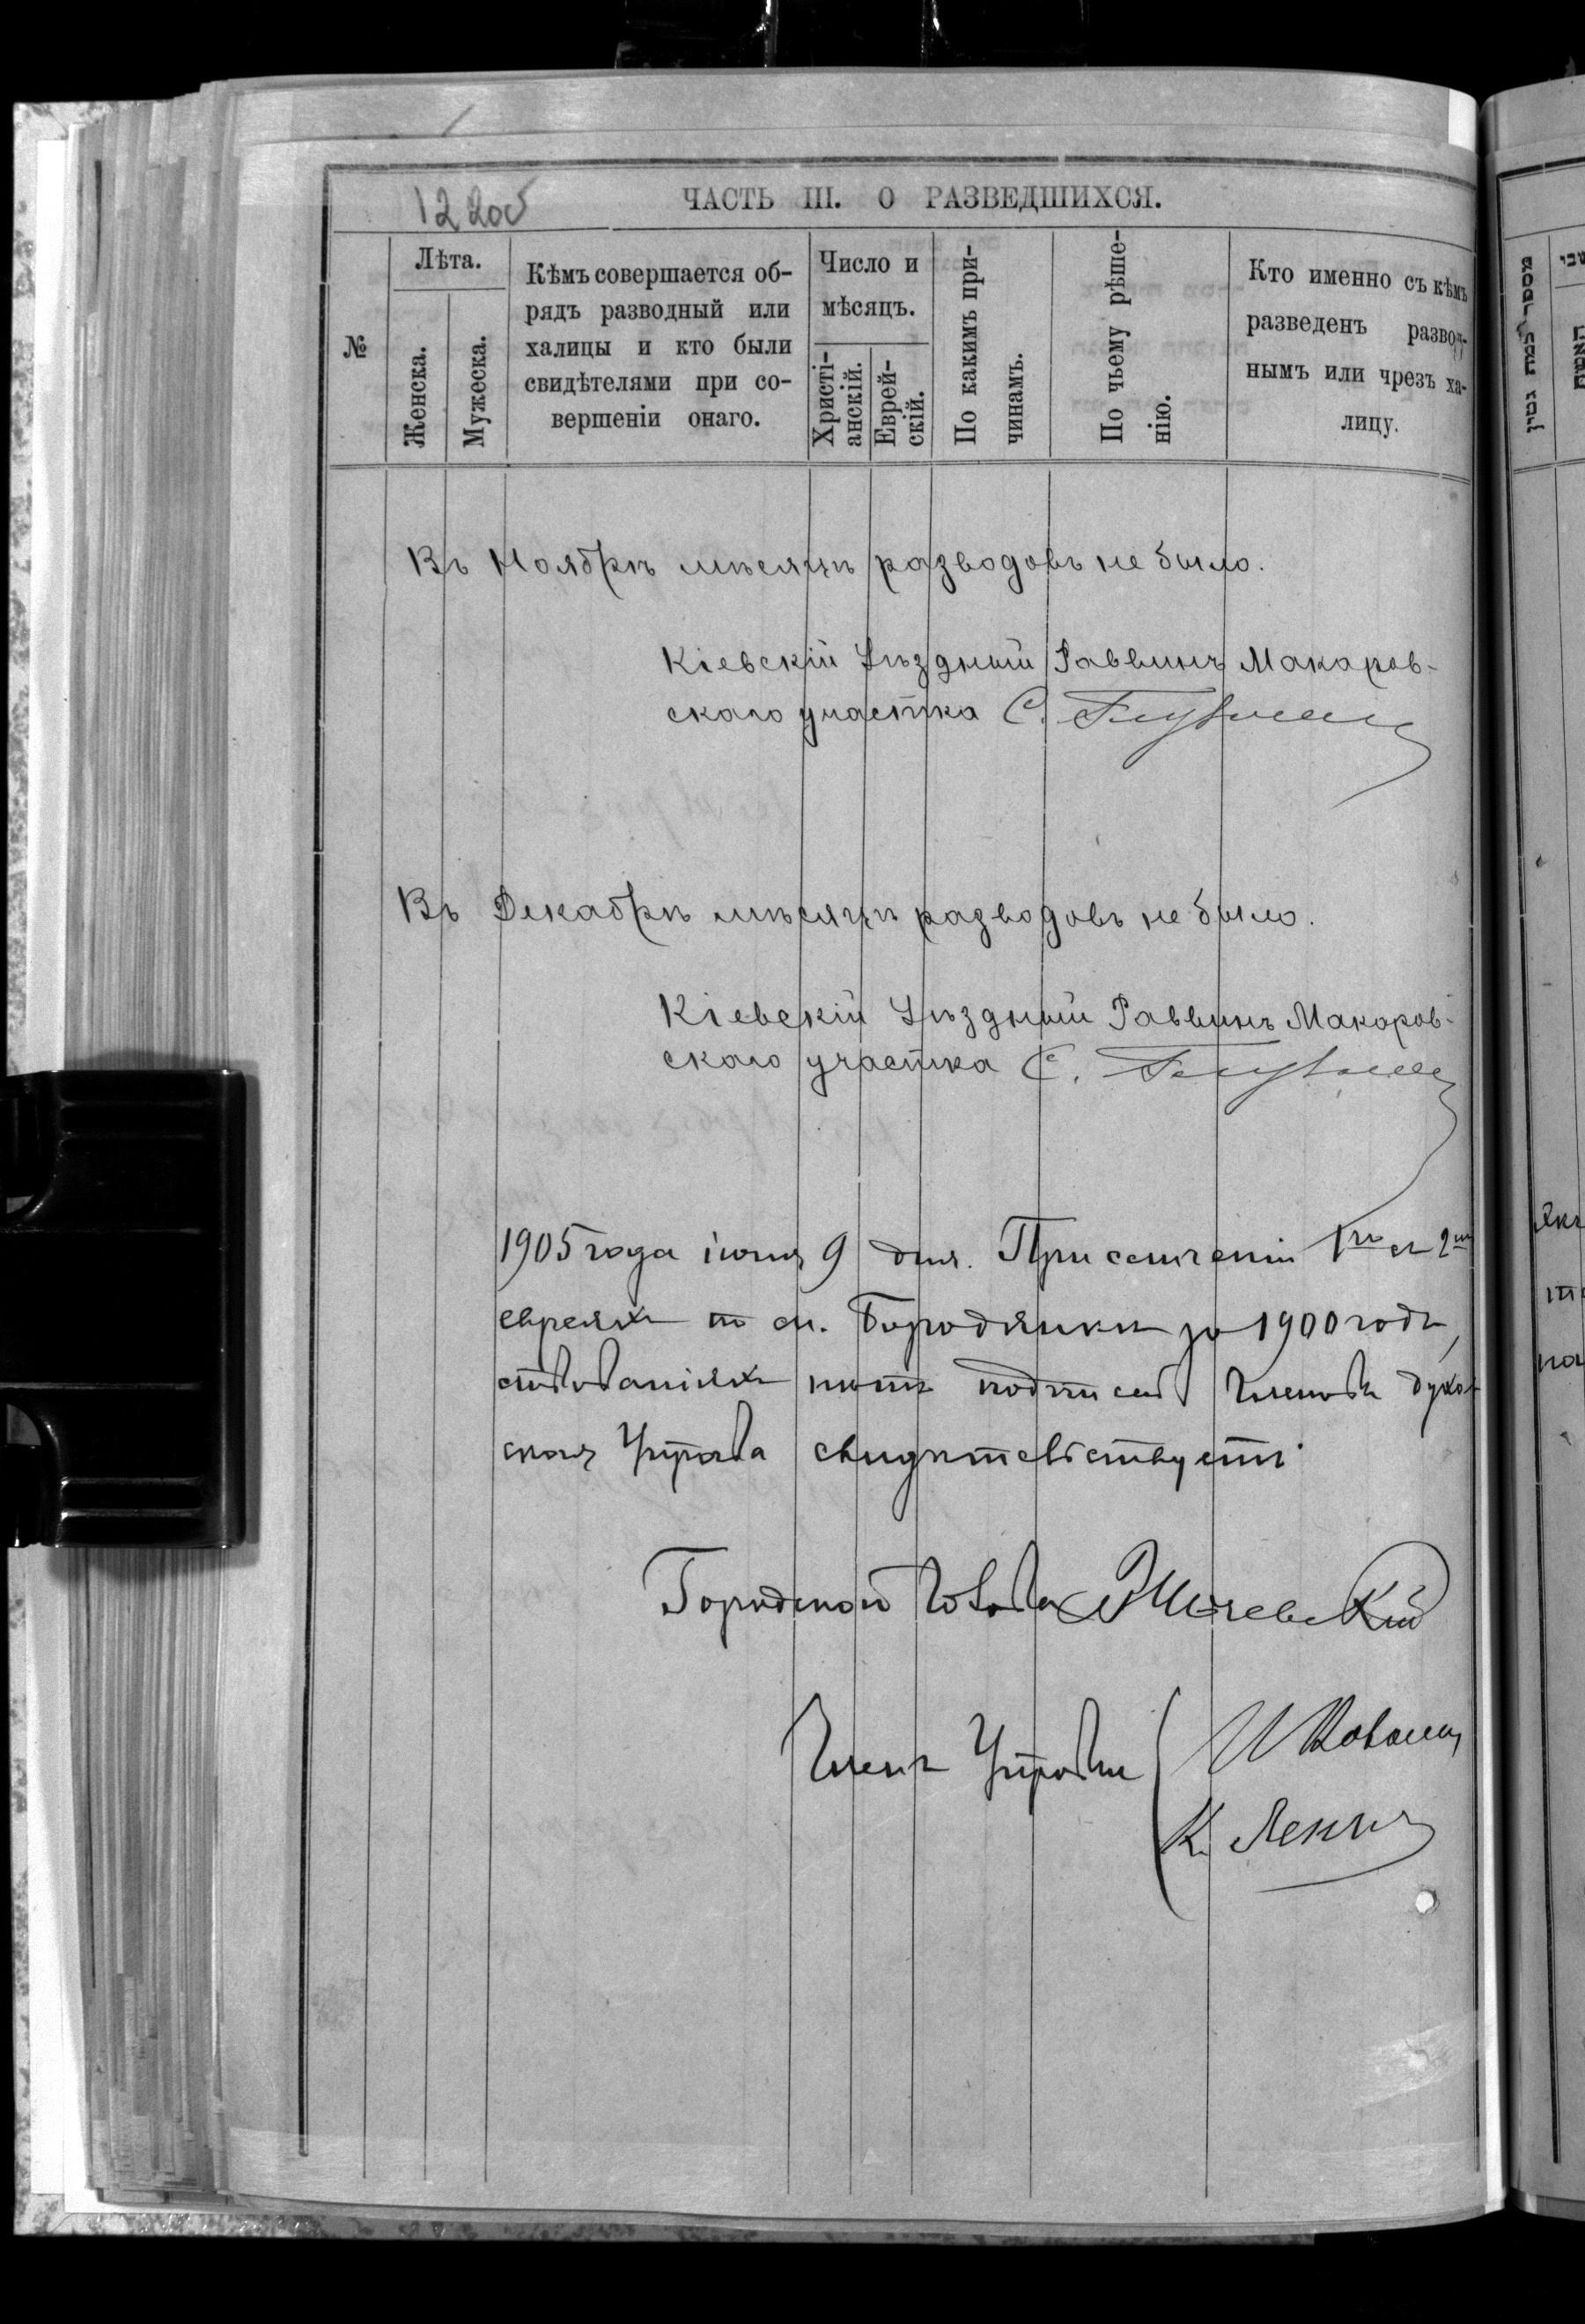 12 20об
ЧАСТЬ III. О РАЗВЕДШИХСЯ.
№
Лѣта.
Женска.
Мужеска.
Кѣмъ совершается об-
рядъ разводный или
халицы и кто были
свидѣтелями при со-
вершеніи онаго.
Число и
мѣсяцъ.
Христі-
анскій.
Еврей-
скій.
По какимъ при-
чинамъ.
По чьему рѣше-
нію.
Кто именно съ кѣмъ
разведенъ развод-
нымъ или чрезъ ха-
лицу.
Въ Ноябрѣ мѣсяцѣ разводовъ не было.
Кіевскій Уѣздный Раввинъ Макаров-
скаго участка С.
Въ Декабрѣ мѣсяцѣ разводовъ не было.
Кіевскій Уѣздный Раввинъ Макаров-
скаго участка С.
1905 года 9 дня. При сличеніи 1го съ 2мъ
евреяхъ по м. Бородянкѣ за 1900 годъ,
нѣтъ подписей Членовъ духов
ская Управа свидѣтельствуетъ.
Городской Голова
Члены Управы И Коваль
К.
מספר למת גטין